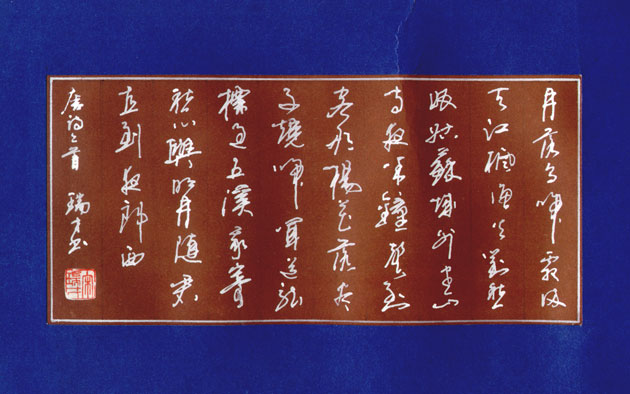 月落烏啼霜滿
天江楓漁火對愁
眠姑蘇城外寒山
寺夜半鐘聲到
客船楊花落盡
子規啼聞道龍
標過五溪我寄
愁心與明月隨君
直到夜郎西
唐詩二首 瑞